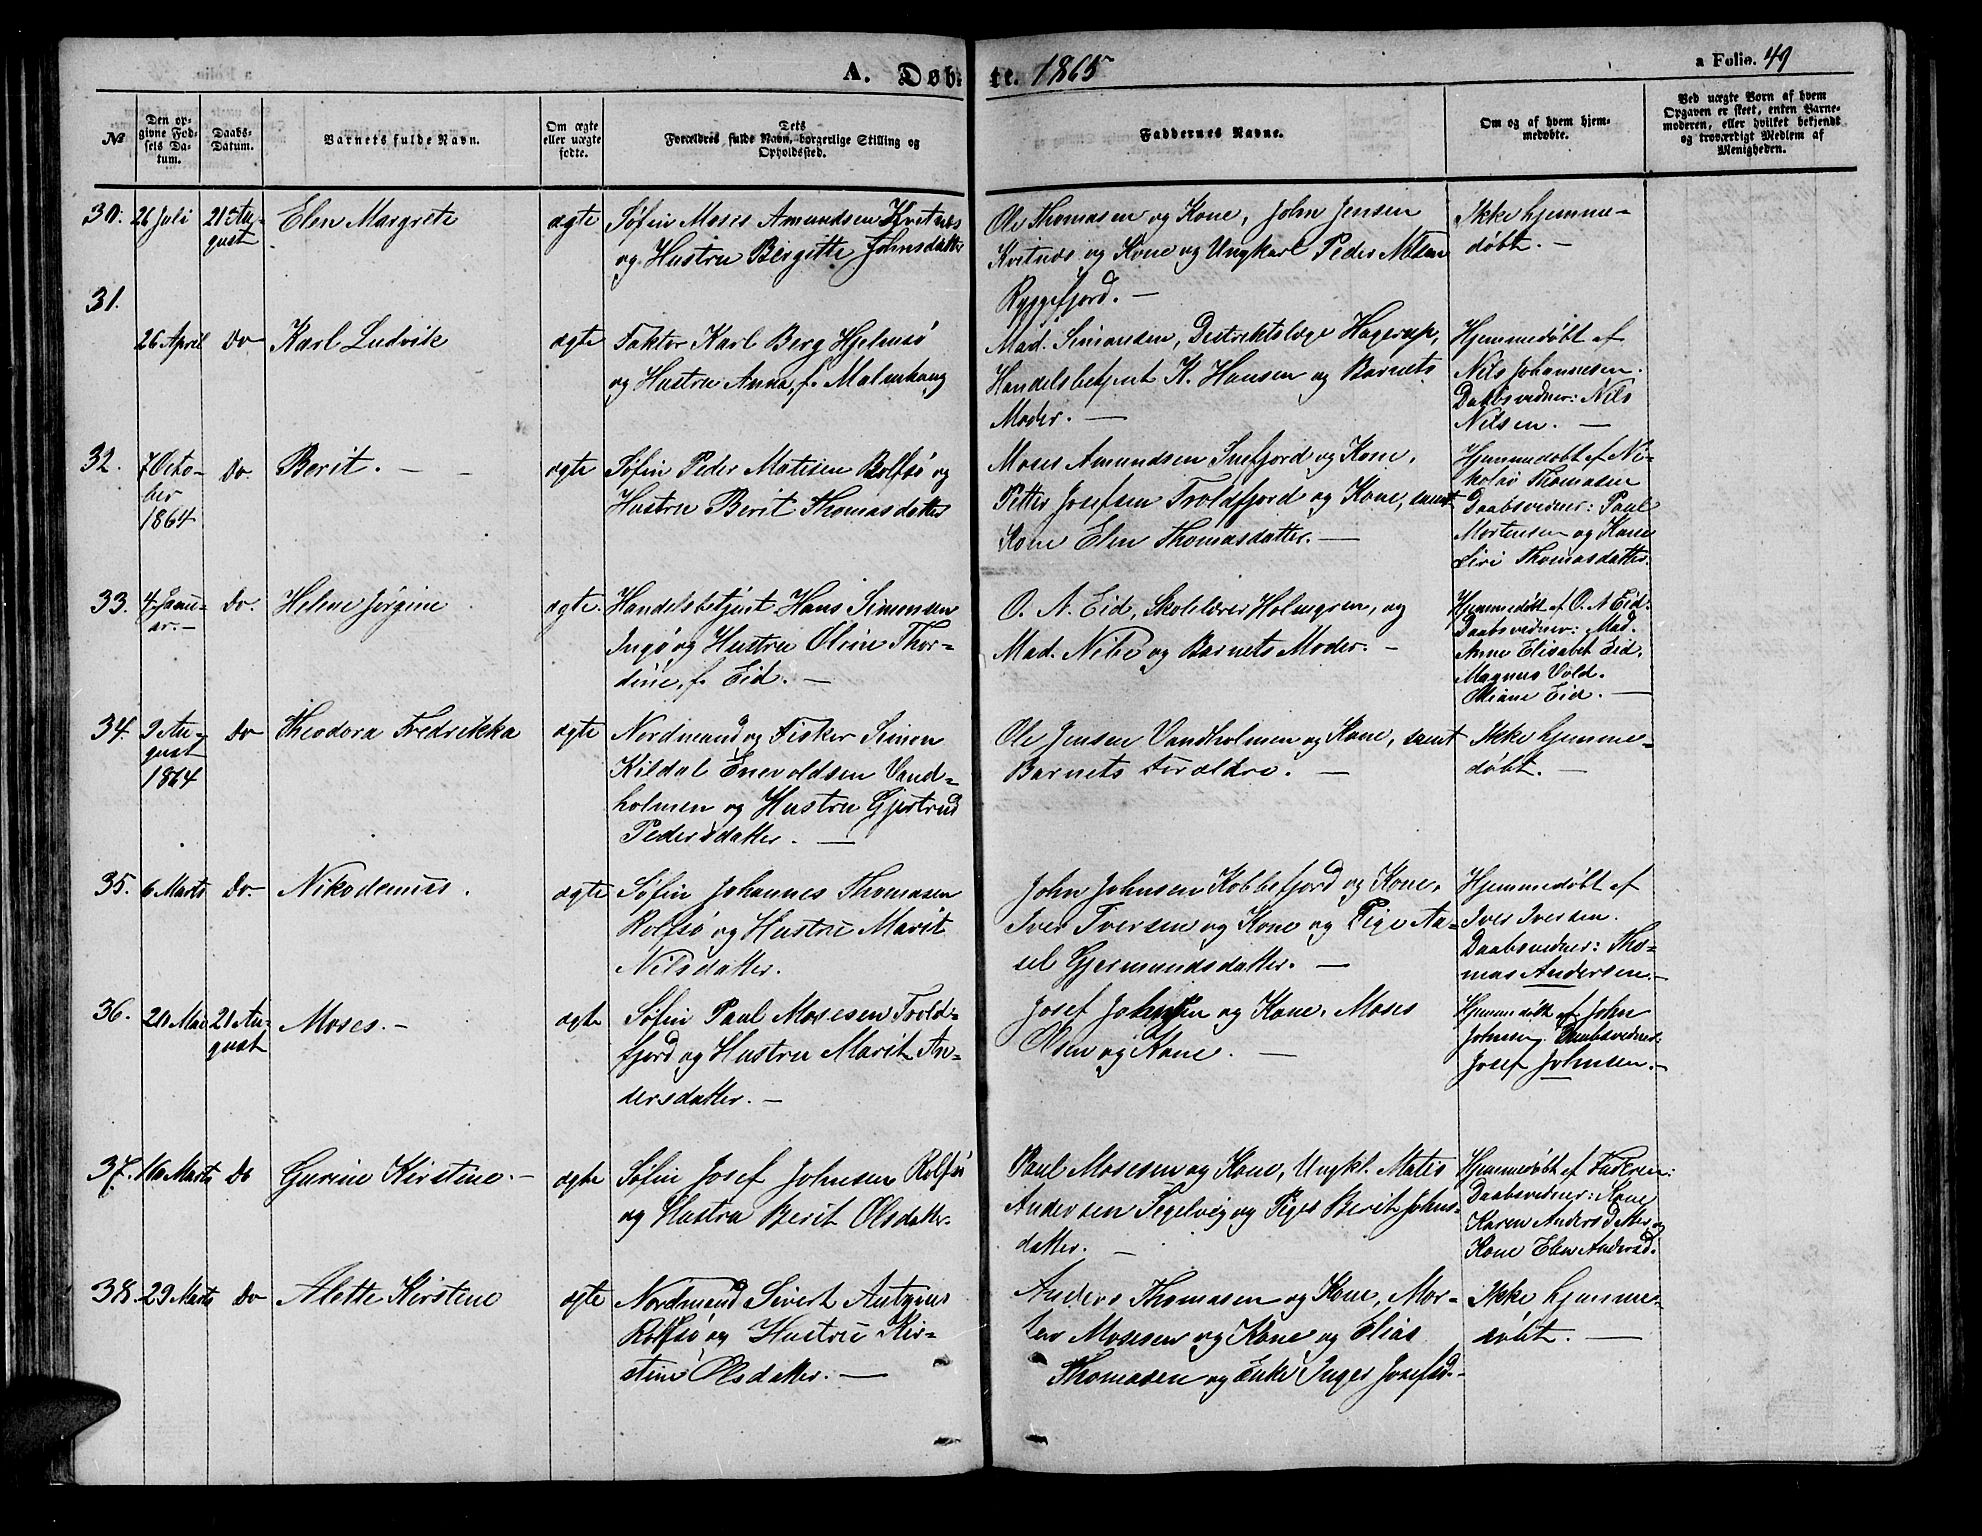 A. Døb-
te. 1865
a Folio. 49
№
Den op-
givne Fød-
sels Da-
tum.
Daabs-
Datum.
Barnets fulde Navn.
Om ægte
eller uægte
fødte.
Dets
Forældres fulde Navn, borgerlige Stilling og
Opholdssted.
Faddernes Navne.
Om og af hvem hjem-
medøbte.
Ved uægte Børn af hvem
Opgaven er skeet, enten Barne-
moderen, eller hvilket bekjendt
og troværdigt Medlem af
Menigheden.
30.
26 Juli
21 Au-
gust
Elen Margrete
ægte
Søfin Moses Amundsen Kvitnæs
og Hustru Bergitte Johnsdatter
Ole Thomasen og Kone, John Jensen
Kvitnæs og Kone og Ungkarl Peder Nilsen
Ryggefjord. —
Ikke hjemme-
døbt. —
31.
26 April
Do
Karl Ludvik
ægte
Faktor Karl Berg Hjelmsø
og Hustru Anna, f. Malmhaug
Mad. Simonsen, Destriktslæge Hagerup,
Handelsbetjent K. Hansen og Barnets
Moder. —
Hjemmedøbt af
Nils Johannesen.
Daabsvidner: Nils
Nilsen. —
32.
7 Octo-
ber
1864
Do.
Berit. —
ægte
Søfin Peder Matisen Rolfsø og
Hustru Berit Thomasdatter
Moses Amundsen Snefjord og Kone,
Petter Josefsen Troldfjord og Kone, samt
Kone Elen Thomasdatter. —
Hjemmedøbt af Ni-
kolai Thomasen
Daabsvidner: Paul
Mortensen og Kone
Siri Thomasdatter.
33.
4 Janu-
ar. —
Do.
Helene Jørgine
ægte.
Handelsbetjent Hans Simonsen
Ingø og Hustru Oline Thor-
dine, f. Eid. —
O. N. Eid, Skolelærer Holmgren, og
Mad. Nibe og Barnets Moder. —
Hjemmedøbt af O. N Eid.
Daabsvidner: Mad.
Anne Elisabet Eid.
Magnus Vold.
Oliane Eid. —
34.
9 Au-
gust
1864
Do
Theodora Fredrikka
ægte
Nordmand og Fisker Simon
Kildal Enevoldsen Vand-
holmen og Hustru Gjertrud
Pedersdatter. —
Ole Jensen Vandholmen og Kone, samt
Barnets Forældre. —
Ikke hjemme-
døbt. —
35.
6 Marts
Do
Nikodemus.
ægte
Søfin Johannes Thomasen
Rolfsø og Hustru Marit
Nilsdatter.
John Johnsen Kobbefjord og Kone.
Iver Iversen og Kone og Pige Aa-
sel Gjermundsdatter. —
Hjemmedøbt af
Iver Iversen.
Daabsvidner: Tho-
mas Andersen. —
36.
20 Mai
21 Au-
gust
Moses. —
ægte
Søfin Paul Mosesen Trold-
fjord og Hustru Marit An-
dersdatter. —
Josef Johnsen og Kone. Moses
Olsen og Kone. —
Hjemmedøbt af John
Johnsen. Daabsvidner:
Josef Johnsen. —
37.
16 Marts
Do
Gurine Kirstine. —
ægte
Søfin Josef Johnsen Rolfsø
og Hustru Berit Olsdatter.
Paul Mosesen og Kone, Ungkl. Mates
Andersen Segelvig og Piges Berit Johns-
datter. —
Hjemmedøbt af Faderen:
Daabsvidner: Kone
Karen Andersdatter og
Kone Elen Andersd.
38.
29 Marts
Do
Alette Kirstine
ægte
Nordmand Sivert Antonius
Rolfsø og Hustru Kir-
stine Olsdatter. —
Anders Thomasen og Kone, Mor-
ten Mosesen og Kone og Elias
Thomasen og Enke Inger Josefsd. —
Ikke hjemme-
døbt. —